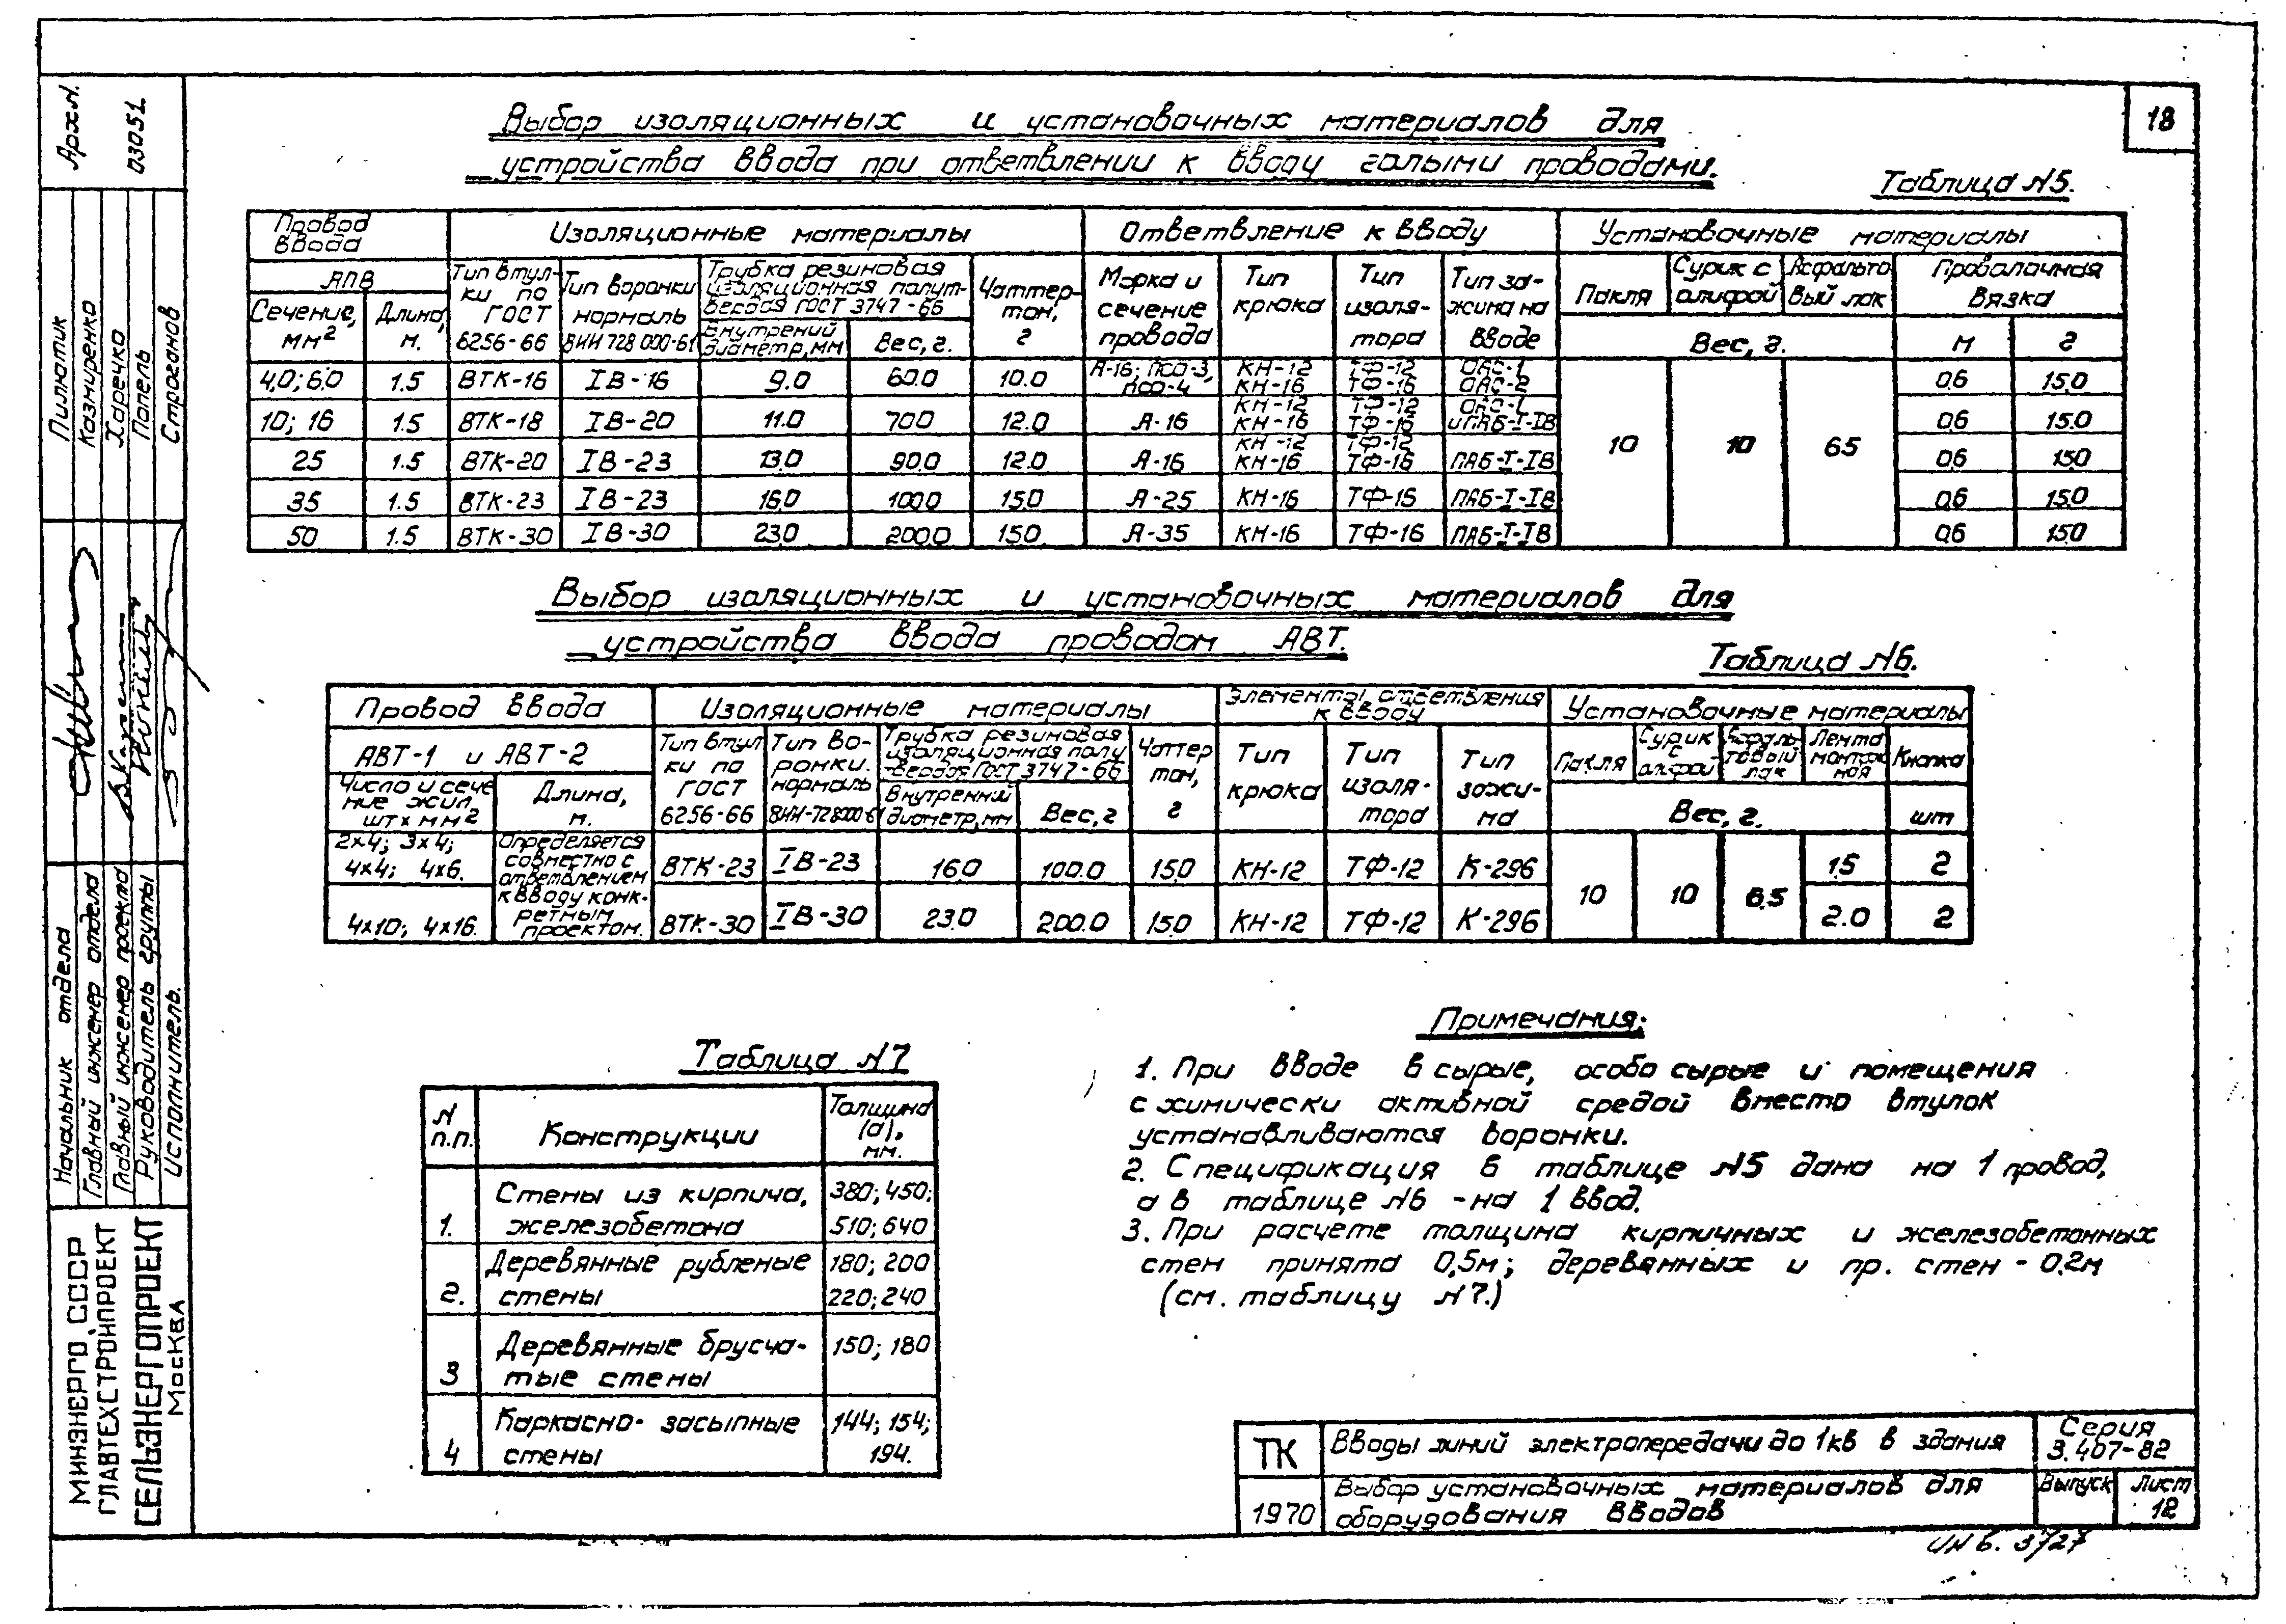 18
Выбор изоляционных и установочных материалов для
устройства ввода при ответвлении к вводу голыми проводами.
Таблица N5.
Провод ввода | Изоляционные материалы | Ответвление к вводу | Установочные материалы
АПВ | Тип втулки по ГОСТ 6256-66 | Тип воронки нормаль | Трубка резиновая изоляционная полутвердая ГОСТ 3747-66 | Чаттертон, г | Марка и сечение провода | Тип крюка | Тип изолятора | Тип зажима на вводе | Пакля | Сурик с олифой | Асфальтовый лак | Проволочная вязка
Сечение, мм2 | Длина, м. | Внутрений диаметр, мм | Вес, г. | Вес, г. | м | г
4,0; 6,0 | 1.5 | ВТК-16 | IВ-16 | 9.0 | 60.0 | 10.0 | А-16; ПСО-3, ПСО-4 | КН-12 КН-16 | ТФ-12 ТФ-16 | ОАС-1 ОАС-2 | 10 | 10 | 65 | 0,6 | 15.0
10; 16 | 1.5 | ВТК-18 | IВ-20 | 11.0 | 70.0 | 12.0 | А-16 | КН-12 КН-16 | ТФ-12 ТФ-16 | ОАС-1 и ПАБ-I-IВ | 0,6 | 15.0
25 | 1.5 | ВТК-20 | IВ-23 | 13.0 | 90.0 | 12.0 | А-16 | КН-12 КН-16 | ТФ-12 ТФ-16 | ПАБ-I-IВ | 0,6 | 15.0
35 | 1.5 | ВТК-23 | IВ-23 | 16.0 | 100.0 | 15.0 | А-25 | КН-16 | ТФ-16 | ПАБ-I-IВ | 0,6 | 15.0
50 | 1.5 | ВТК-30 | IВ-30 | 23.0 | 200.0 | 15.0 | А-35 | КН-16 | ТФ-16 | ПАБ-I-IВ | 0,6 | 15.0
Выбор изоляционных и установочных материалов для
устройства ввода проводом АВТ.
Таблица N6.
Провод ввода | Изоляционные материалы | Элементы ответвления к вводу | Установочные материалы
АВТ-1 и АВТ-2 | Тип втулки по ГОСТ 6256-66 | Тип воронки. нормаль | Трубка резиновая изоляционная полутвердая ГОСТ 3747-66 | Чаттертон, г | Тип крюка | Тип изолятора | Тип зажима | Пакля | Сурик с олифой | Асфальтовый лак | Лента монтажная | Кнопка
Число и сечение жил, шт х мм2 | Длина, м. | Внутренний диаметр, мм | Вес, г | Вес, г. | шт
2х4; 3х4; 4х4; 4х6. | Определяется совместно с ответвлением к вводу конкретным проектом. | ВТК-23 | IВ-23 | 16.0 | 100.0 | 15.0 | КН-12 | ТФ-12 | К-296 | 10 | 10 | 6.5 | 1.5 | 2
4х10; 4х16. | ВТК-30 | IВ-30 | 23.0 | 200.0 | 15.0 | КН-12 | ТФ-12 | К-296 | 2.0 | 2
Таблица N7
N п.п. | Конструкции | Толщина (d), мм.
1. | Стены из кирпича, железобетона | 380; 450; 510; 640
2. | Деревянные рубленые стены | 180; 200 220; 240
3 | Деревянные брусчатые стены | 150; 180
4 | Каркасно-засыпные стены | 144; 154; 194.
Примечания:
1. При вводе в сырые, особо сырые и помещения
с химически активной средой вместо втулок
устанавливаются воронки.
2. Спецификация в таблице N5 дана на 1 провод,
а в таблице N6 - на 1 ввод.
3. При расчете толщина кирпичных и железобетонных
стен принята 0,5м; деревянных и пр. стен - 0,2м
(см. таблицу N7.)
ТК
1970
Вводы линий электропередачи до 1кв в здания
Выбор установочных материалов для
оборудования вводов
Серия
3.407-82
Выпуск
Лист
18
Инв. 3727
Арх.N.
03051
Пилютик
Казмиренко
Харечко
Попель
Строганов
Начальник отдела
Главный инженер отдела
Главный инженер проекта
Руководитель группы
Исполнитель.
МИНЭНЕРГО СССР
ГЛАВТЕХСТРОЙПРОЕКТ
СЕЛЬЭНЕРГОПРОЕКТ
МОСКВА